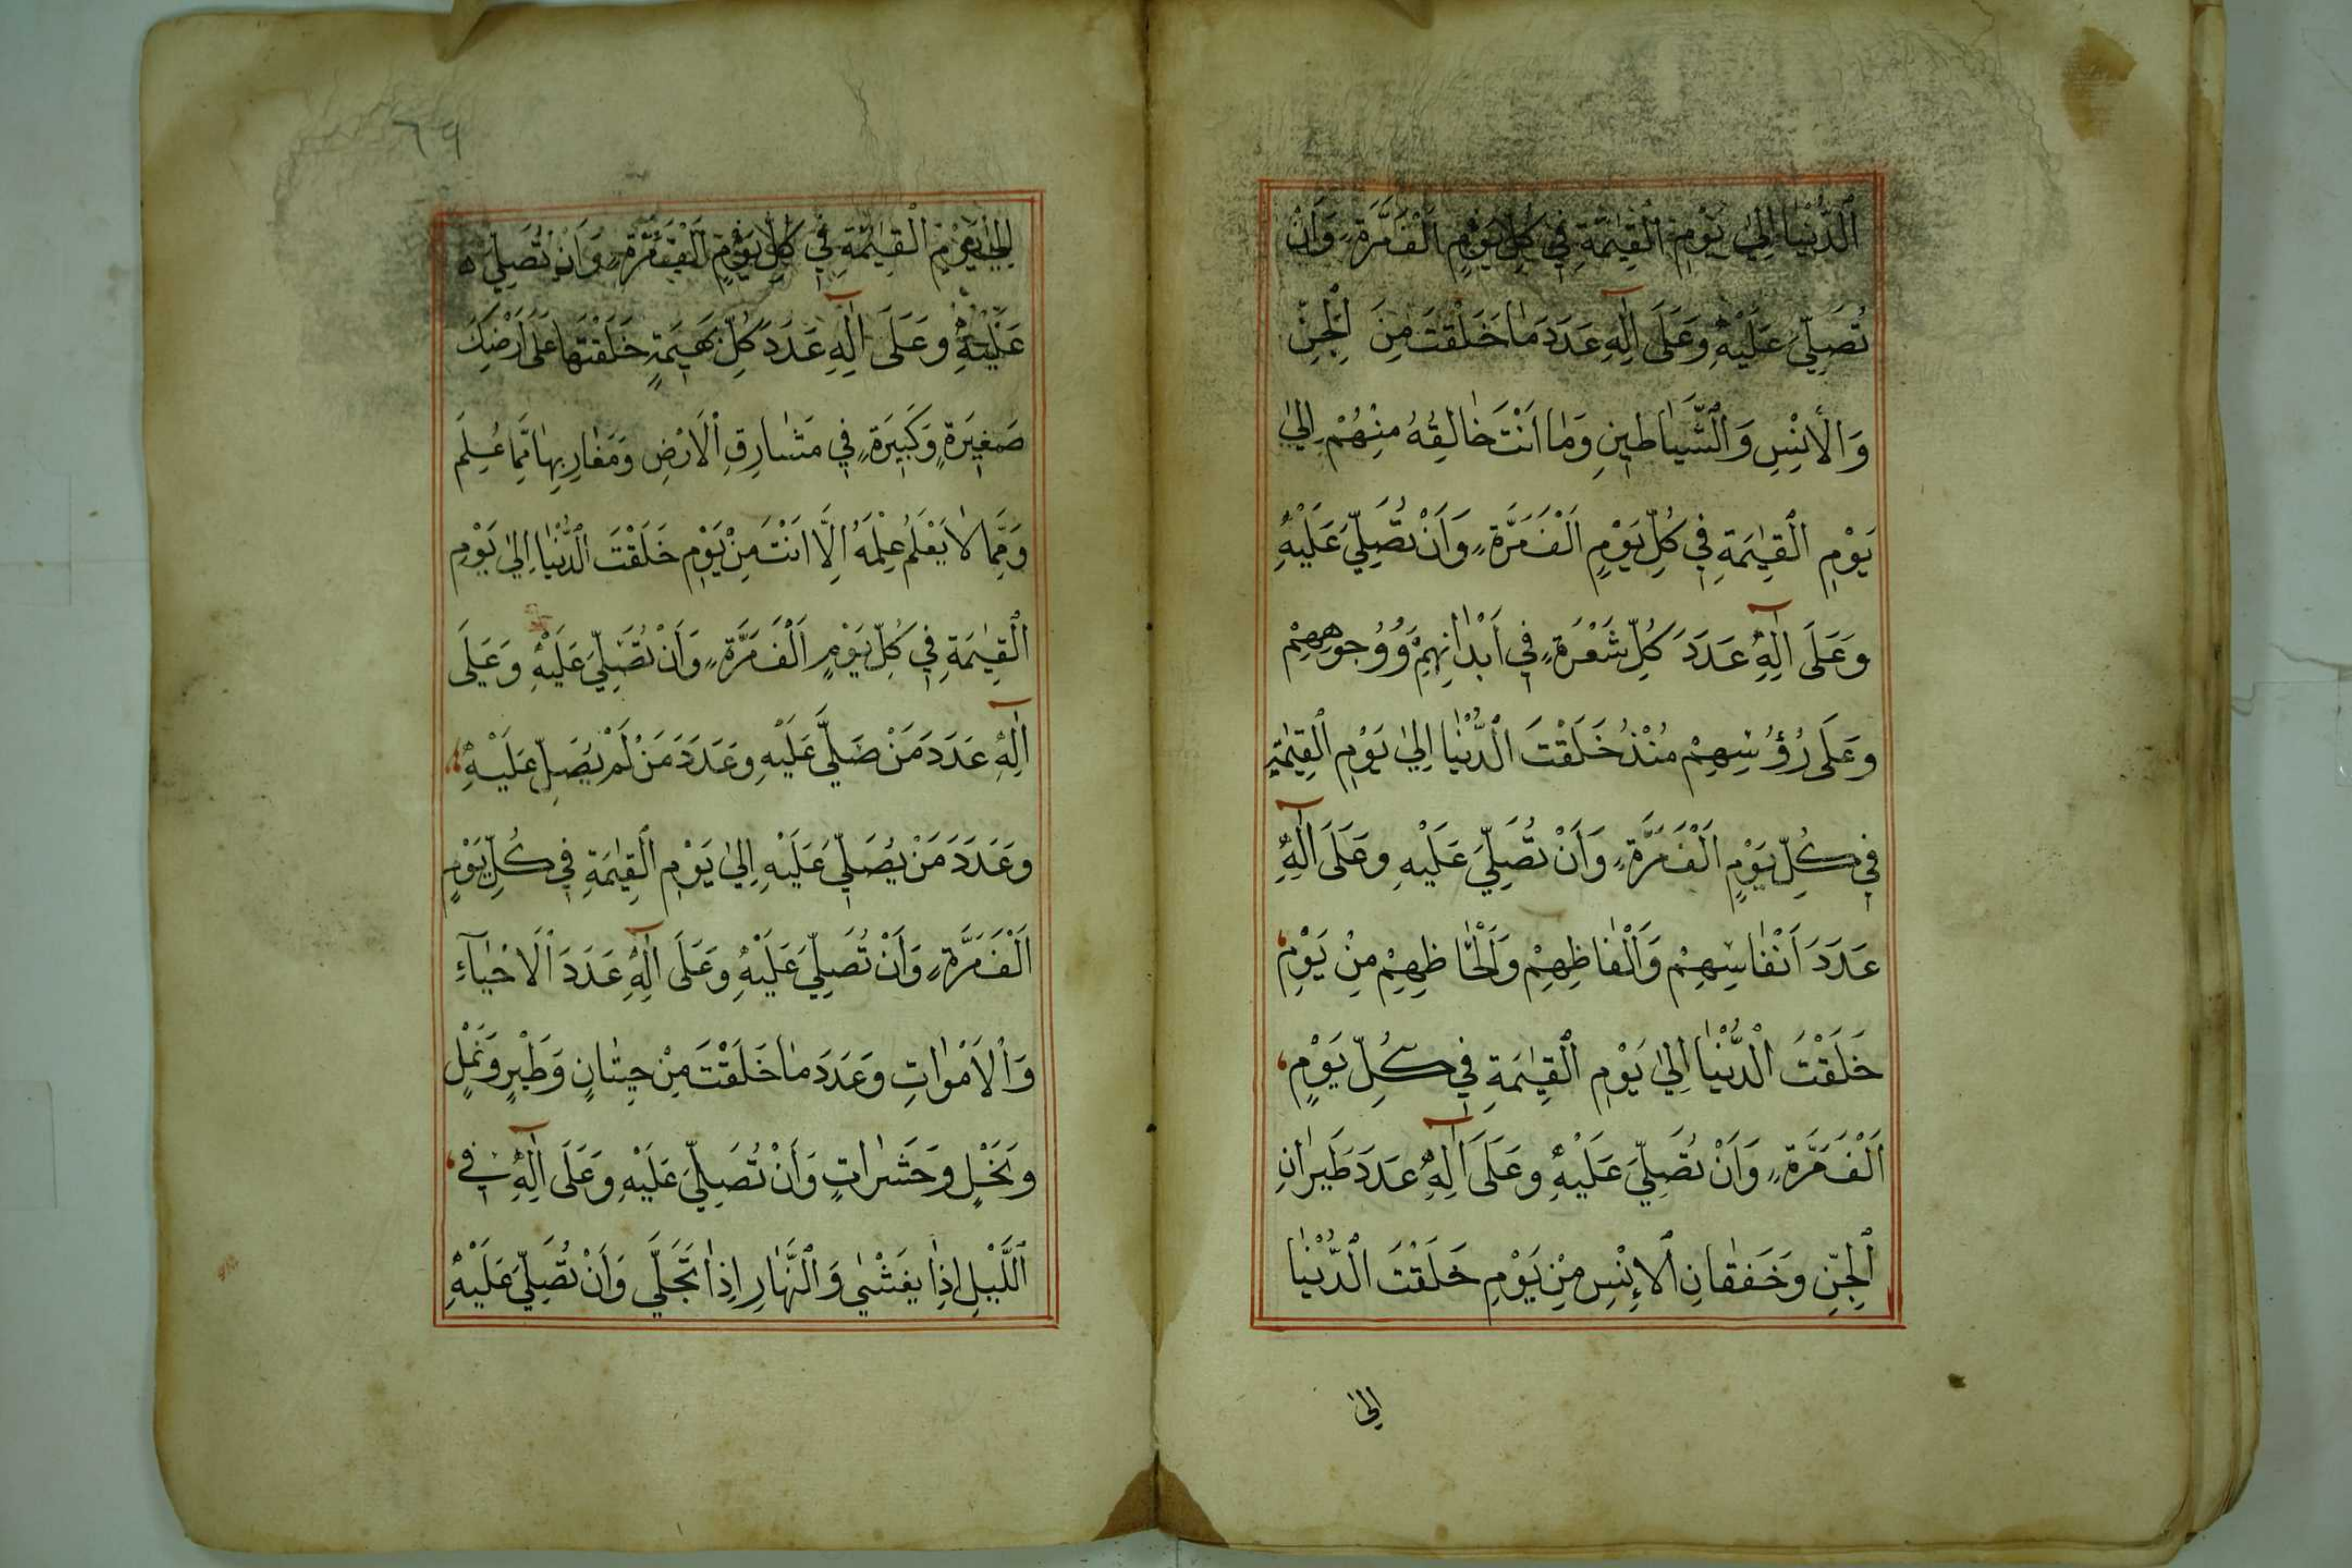 اَلدُّنْيٰا اِلىٰ يَوْمِ الْقِيٰمَةِ فِي كُلِّ يَوْمٍ اَلْفَ مَرَّةٍ وَاَنْ
تُصَلِّيَ عَلَيْهِ وَعَلَى اٰلِهِ عَدَدَ مٰا خَلَقْتَ مِنَ الْجِنِّ
وَالْاِنْسِ وَالشَّيٰاطِينِ وَمٰا اَنْتَ خٰالِقُهُ مِنْهُمْ اِلىٰ
يَوْمِ الْقِيٰمَةِ فِي كُلِّ يَوْمٍ اَلْفَ مَرَّةٍ وَاَنْ تُصَلِّيَ عَلَيْهِ
وَعَلَى اٰلِهِ عَدَدَ كُلِّ شَعْرَةٍ فِي اَبْدٰانِهِمْ وَوُجُوهِهِمْ
وَعَلَى رُؤُسِهِمْ مُنْذُ خَلَقْتَ الدُّنْيٰا اِلىٰ يَوْمِ الْقِيٰمَةِ
فِي كُلِّ يَوْمٍ اَلْفَ مَرَّةٍ وَاَنْ تُصَلِّيَ عَلَيْهِ وَعَلَى اٰلِهِ
عَدَدَ اَنْفٰاسِهِمْ وَاَلْفٰاظِهِمْ وَاَلْحٰاظِهِمْ مِنْ يَوْمِ
خَلَقْتَ الدُّنْيٰا اِلىٰ يَوْمِ الْقِيٰمَةِ فِي كُلِّ يَوْمٍ
اَلْفَ مَرَّةٍ وَاَنْ تُصَلِّيَ عَلَيْهِ وَعَلَى اٰلِهِ عَدَدَ طَيَرٰانِ
الْجِنِّ وَخَفَقٰانِ الْاِنْسِ مِنْ يَوْمِ خَلَقْتَ الدُّنْيٰا
اِلىٰ
٦٩
اِلىٰ يَوْمِ الْقِيٰمَةِ فِي كُلِّ يَوْمٍ اَلْفَ مَرَّةٍ وَاَنْ تُصَلِّيَ
عَلَيْهِ وَعَلَى اٰلِهِ عَدَدَ كُلِّ بَهِيمَةٍ خَلَقْتَهٰا عَلَى اَرْضِكَ
صَغِيرَةٍ وَكَبِيرَةٍ فِي مَشٰارِقِ الْاَرْضِ وَمَغٰارِبِهٰا مِمّٰا عُلِمَ
وَمِمّٰا لٰا يَعْلَمُ عِلْمَهُ اِلَّا اَنْتَ مِنْ يَوْمِ خَلَقْتَ الدُّنْيٰا اِلىٰ يَوْمِ
الْقِيٰمَةِ فِي كُلِّ يَوْمٍ اَلْفَ مَرَّةٍ وَاَنْ تُصَلِّيَ عَلَيْهِ وَعَلَى
اٰلِهِ عَدَدَ مَنْ صَلَّى عَلَيْهِ وَعَدَدَ مَنْ لَمْ يُصَلِّ عَلَيْهِ
وَعَدَدَ مَنْ يُصَلِّي عَلَيْهِ اِلىٰ يَوْمِ الْقِيٰمَةِ فِي كُلِّ يَوْمٍ
اَلْفَ مَرَّةٍ وَاَنْ تُصَلِّيَ عَلَيْهِ وَعَلَى اٰلِهِ عَدَدَ الْاَحْيٰآءِ
وَالْاَمْوٰاتِ وَعَدَدَ مٰا خَلَقْتَ مِنْ حِيتٰانٍ وَطَيْرٍ وَنَمْلٍ
وَنَحْلٍ وَحَشَرٰاتٍ وَاَنْ تُصَلِّيَ عَلَيْهِ وَعَلَى اٰلِهِ فِي
اللَّيْلِ اِذٰا يَغْشٰى وَالنَّهٰارِ اِذٰا تَجَلّٰى وَاَنْ تُصَلِّيَ عَلَيْهِ